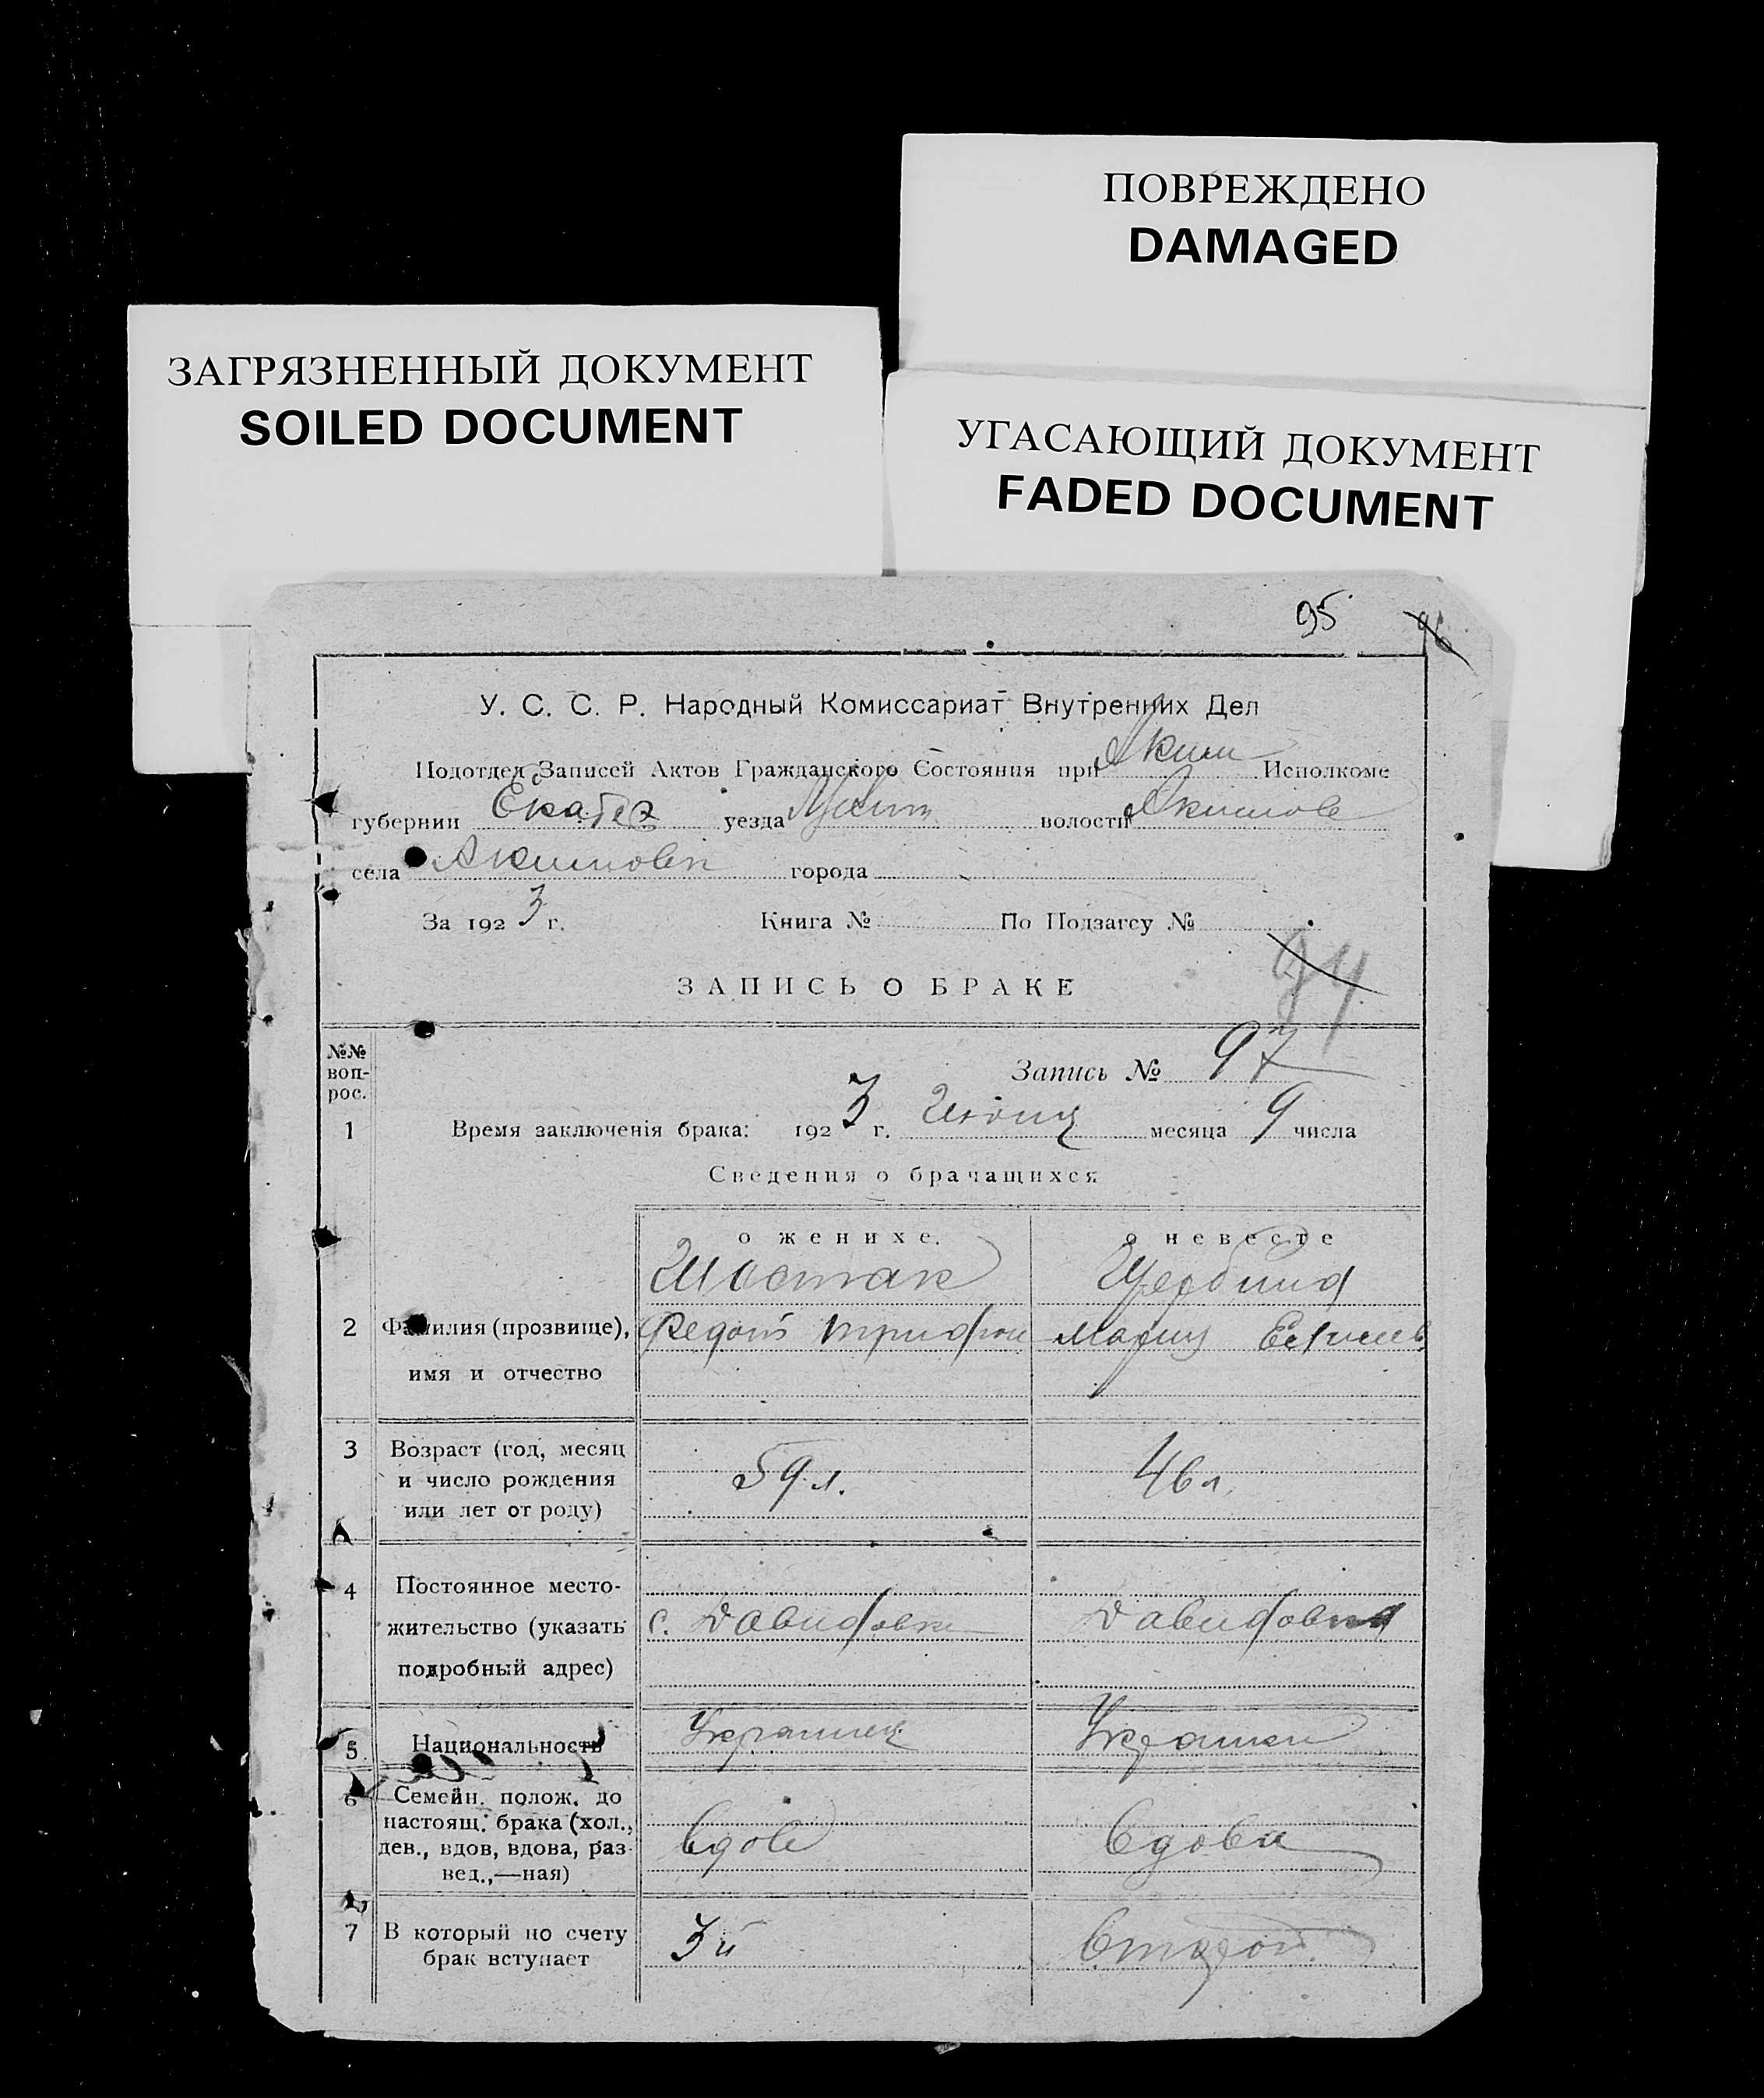 ПОВРЕЖДЕНО
DAMAGED
ЗАГРЯЗНЕННЫЙ ДОКУМЕНТ
SOILED DOCUMENT
УГАСАЮЩИЙ ДОКУМЕНТ
FADED DOCUMENT
95 96
У. С. С. Р. Народный Комиссариат Внутренних Дел
Подотдел Записей Актов Гражданского Состояния при Аким Исполкоме
губернии Екатер уезда Мелит волости Акимов
села Акимовка города
За 1923 г. Книга № По Подзагсу №
94
ЗАПИСЬ О БРАКЕ
№№ вопрос.
Запись № 97
1 Время заключенія брака: 1923 г. Июня месяца 9 числа
Сведения о брачащихся
о женихе. о невесте
Шостак Щербина
2 Фамилия (прозвище), Федот Трифон Мария Ефимов
имя и отчество
3 Возраст (год, месяц
и число рождения 59 л. 46 л.
или лет от роду)
4 Постоянное место-
жительство (указать с. Давидовка Давидовка
подробный адрес)
5 Национальность Украинец Украинка
6 Семейн. полож. до
настоящ. брака (хол.,
дев., вдов, вдова, раз- вдов вдова
вед.,—ная)
7 В который по счету 3й второй
брак вступает